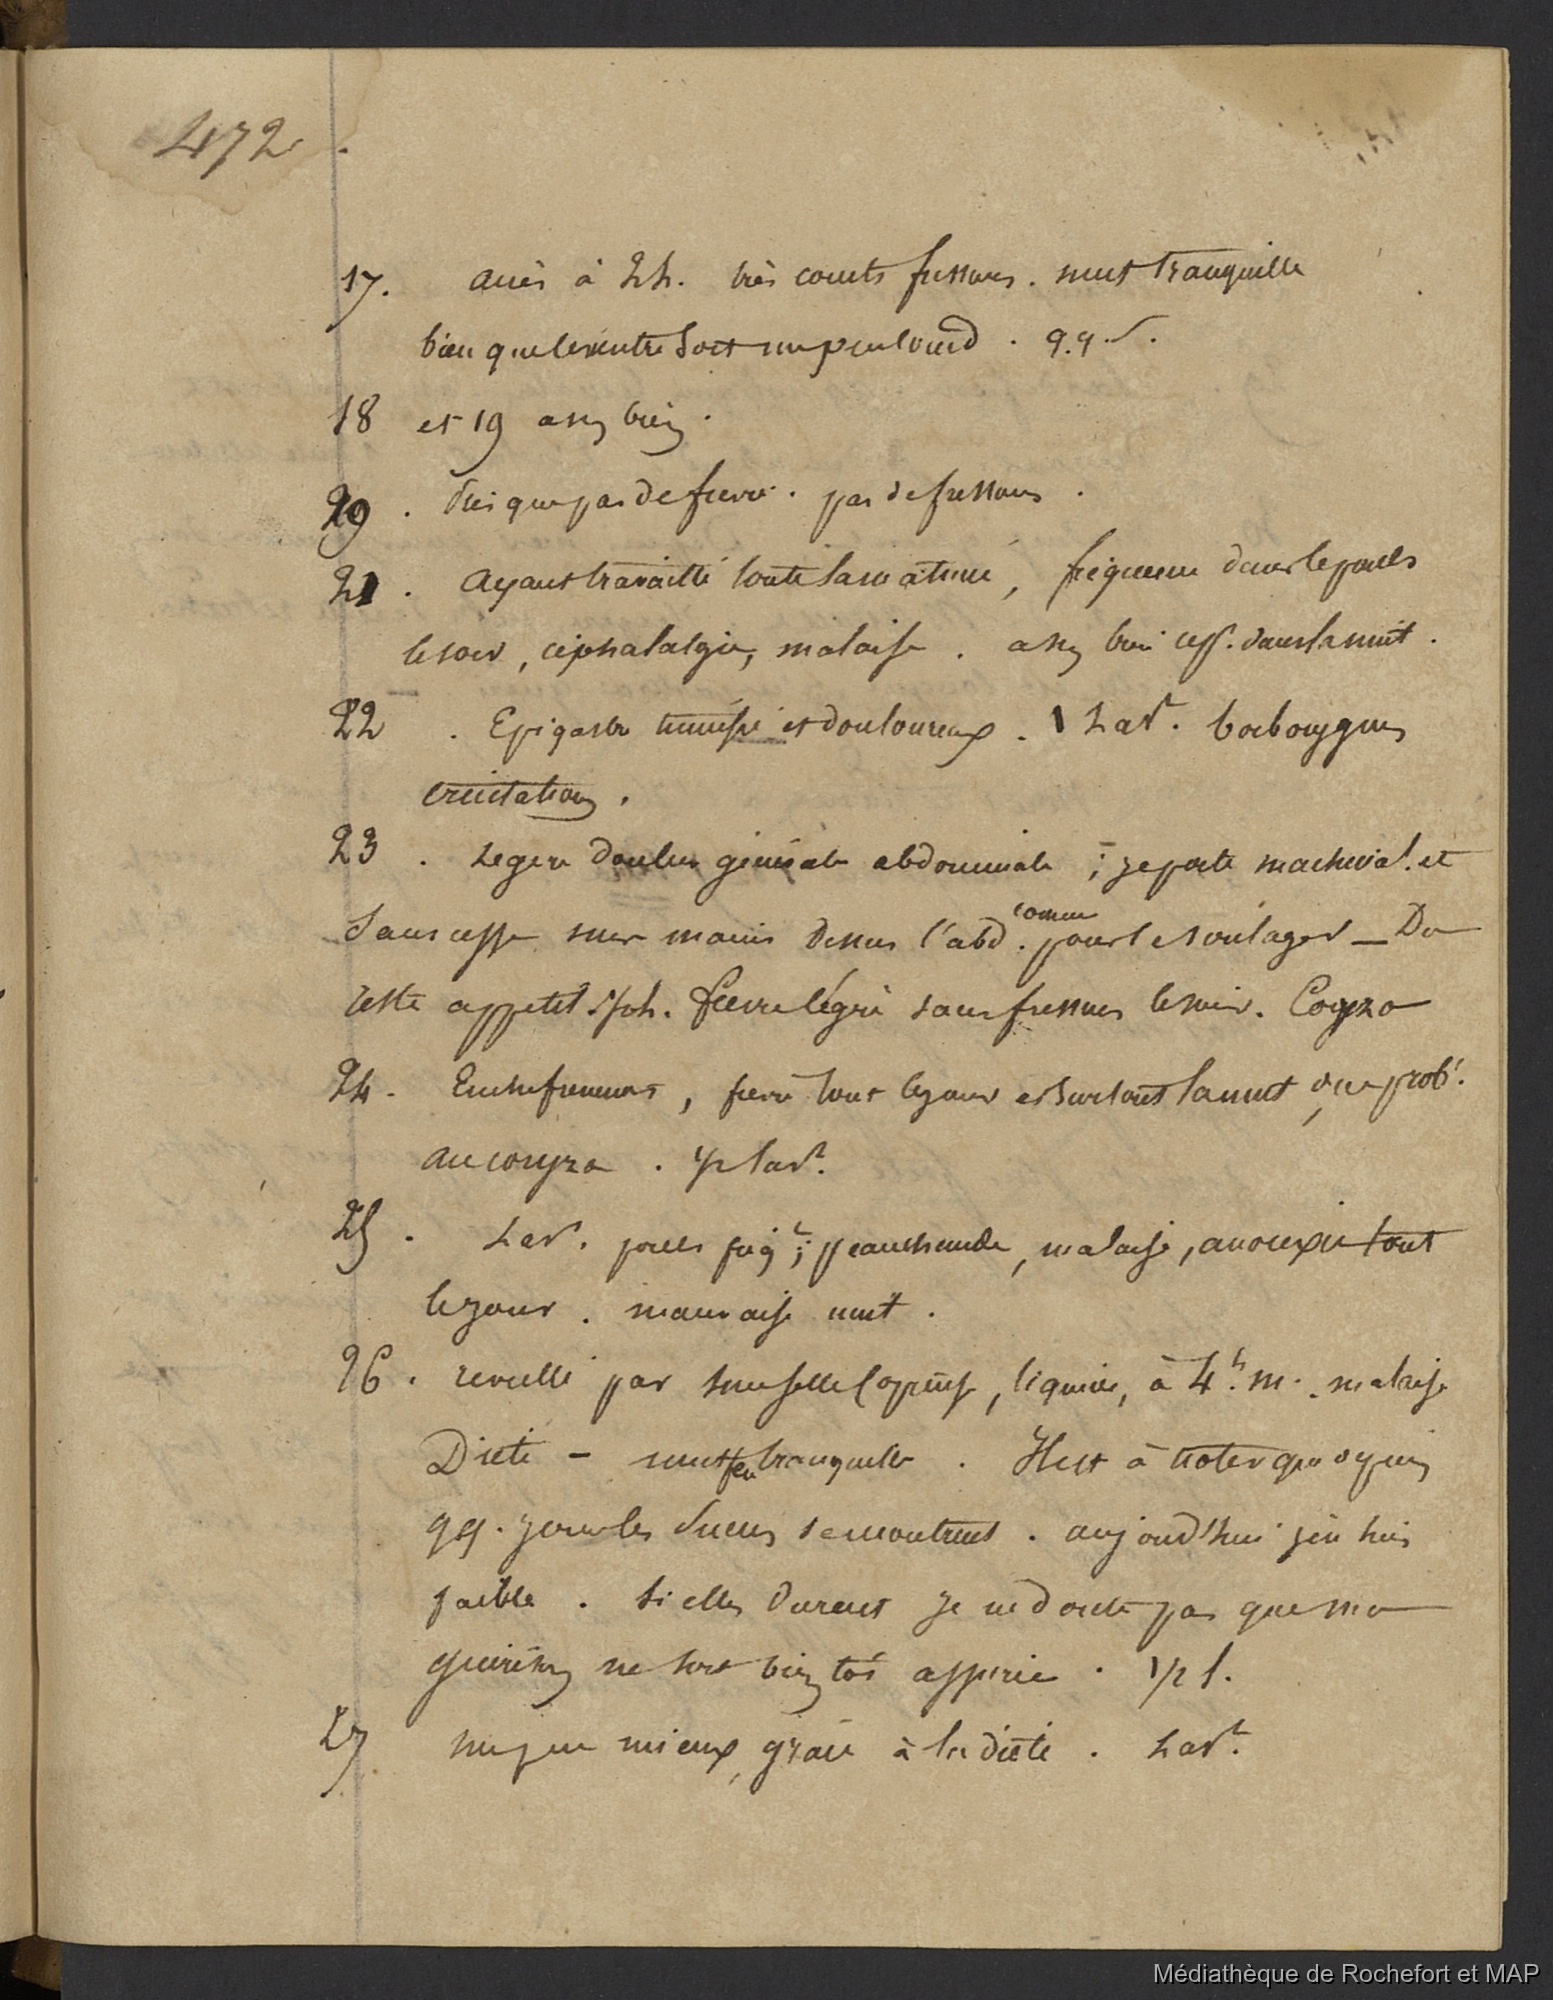 472.
17. accès à 2h. très courts frissons. nuit tranquille
bien que le ventre soit un peu lourd. q.q. s.
18 et 19 assez bien.
20. presque pas de fièvre. pas de frissons.
21. Ayant travaillé toute la matinée, fréquence dans le pouls
le soir, céphalalgie, malaise. assez bien cess. dans la nuit.
22. Epigastre tuméfié et douloureux. 1 Lavt. borborygmes
éructations.
23. Légère douleur générale abdominale; je porte machinal. et
sans cesse mes mains dessus l'abd. comme pour le soulager — Du
reste appetit. Fièvre légère sans frissons le soir. Coryza
24. Enchifrenement, fièvre tout le jour et surtout la nuit, due probt.
au coryza. 1/2 lavt.
25. Lavt. pouls fréqt; peau chaude, malaise, anorexie tout
le jour. mauvaise nuit.
26. reveillé par une selle copieuse, liquide, à 4h. m. malaise
Diète — nuit peu tranquille. Il est à noter que depuis
qq. jours les sueurs se montrent. aujourd'hui j'en suis
faible. Si elles durent je ne doute pas que ma
guérison ne soit bientôt assurée. 1/2 l.
27 un peu mieux, grace à la diète. Lavt.
Médiathèque de Rochefort et MAP